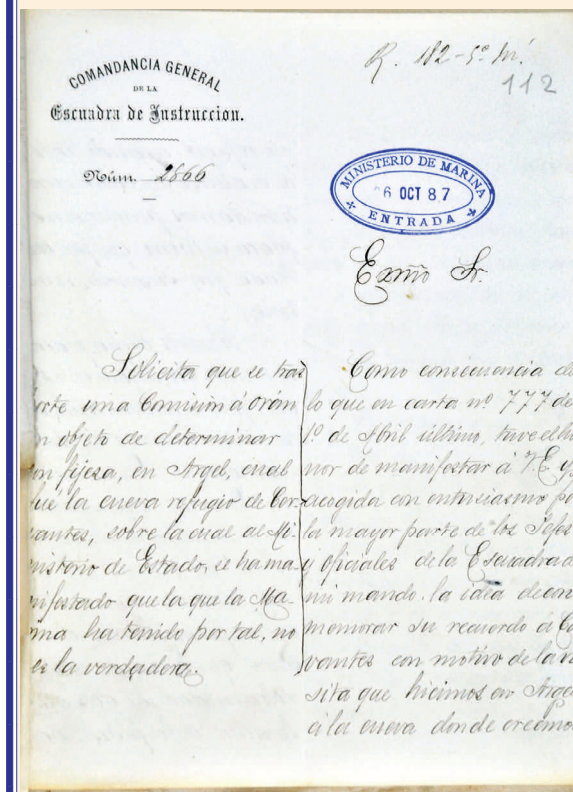 R. 182-5º M.
112
COMANDANCIA GENERAL
DE LA
Escuadra de Instruccion.
Núm. 2866
MINISTERIO DE MARINA
6 OCT 87
ENTRADA
Exmo Sr.
Solicita que se tras
orte una Comision á Orán
n objeto de determinar
on fijeza, en Argel, cual
ue la cueva refugio de Cer
vantes, sobre la cual al Mi-
nisterio de Estado, se ha ma
nifestado que la que la Ma-
rina ha tenido por tal, no
es la verdadera.
Como consecuencia de
lo que en carta nº 777 de
1º de Abril último, tuve el ho
nor de manifestar á V.E. y
acogida con entusiasmo po
la mayor parte de los Jefes
y oficiales de la Escuadra d
mi mando la idea de con
memorar su recuerdo á Ce
vantes con motivo de la vi
sita que hicimos en Argel
á la cueva donde creemos